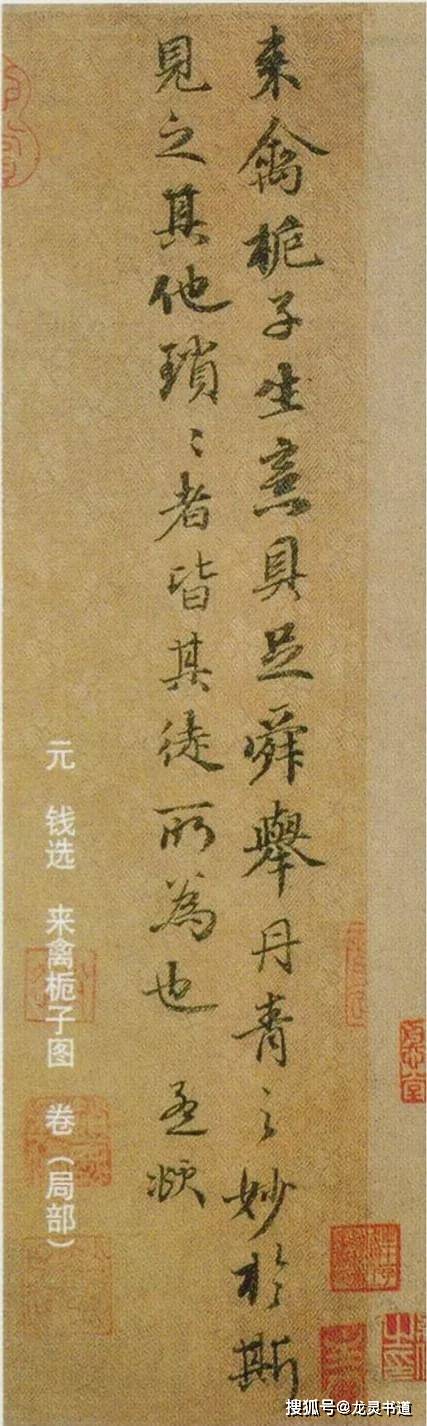 来禽栀子生意具足舜舉丹青之妙於斯
見之其他瑣〻者皆其徒所為也 孟頫
元 钱选 来禽栀子图 卷（局部）
搜狐号@龙灵书道